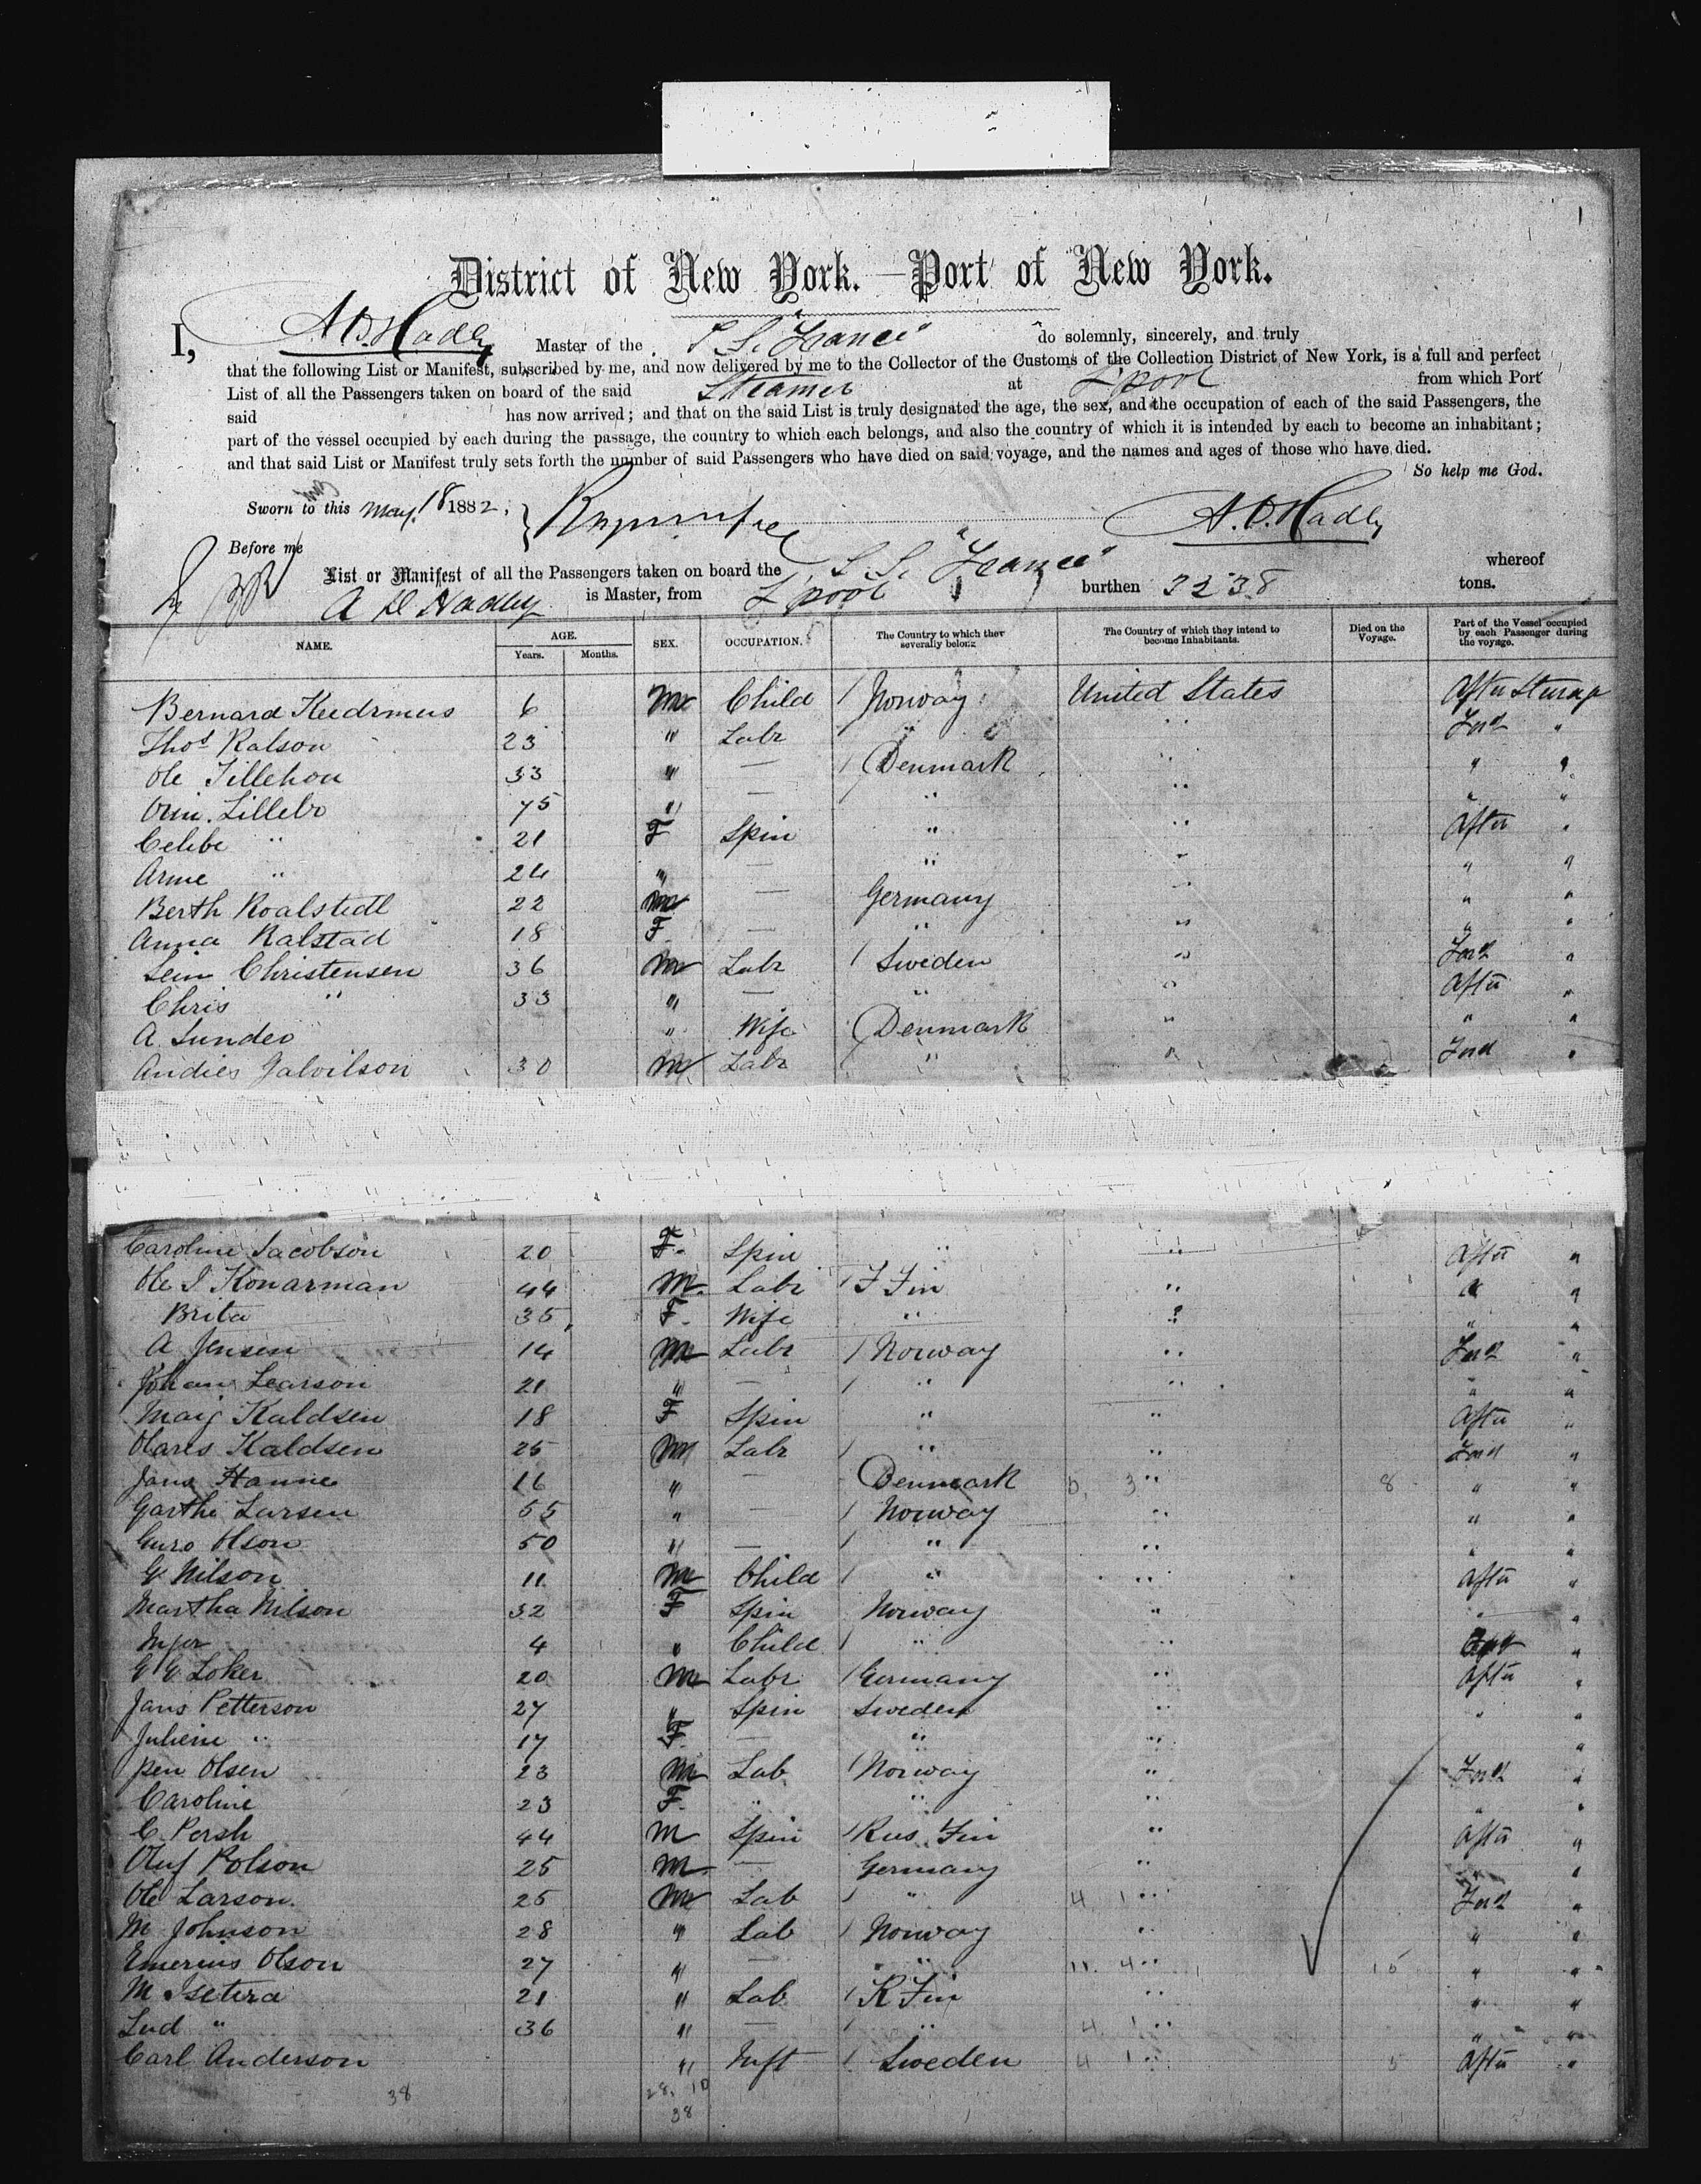 District of New York.—Port of New York.
I, A. D. Hadley Master of the S. S. "France" do solemnly, sincerely, and truly
that the following List or Manifest, subscribed by me, and now delivered by me to the Collector of the Customs of the Collection District of New York, is a full and perfect
List of all the Passengers taken on board of the said Steamer at L'pool from which Port
said has now arrived; and that on the said List is truly designated the age, the sex, and the occupation of each of the said Passengers, the
part of the vessel occupied by each during the passage, the country to which each belongs, and also the country of which it is intended by each to become an inhabitant;
and that said List or Manifest truly sets forth the number of said Passengers who have died on said voyage, and the names and ages of those who have died.
So help me God.
Sworn to this May 18 1882, A. D. Hadley
Before me
List or Manifest of all the Passengers taken on board the S. S. "France" whereof
A D Hadley is Master, from L'pool burthen 3238 tons.
NAME. AGE. Years. Months. SEX. OCCUPATION. The Country to which they severally belong The Country of which they intend to become Inhabitants. Died on the Voyage. Part of the Vessel occupied by each Passenger during the voyage.
Bernard 6 M Child Norway United States After Steerage
Thos Ralson 23 " Labr " " Ford "
Ole Tillehou 33 " — Denmark " " "
Lillebo 75 " — " " " "
Celibe " 21 F Spin " " After "
Arme " 24 " — " " " "
Berth Roalstedt 22 M — Germany " " "
Anna Ralstad 18 F — " " " "
Sein Christensen 36 M Labr Sweden " Ford "
Chris " 33 " — " " After "
A. Sundeo " Wife Denmark " " "
Andies Galvilson 30 M Labr " " Ford "
Caroline Jacobson 20 F. Spin " " After "
Ole I Konarman 44 M. Labr F Fin " " "
Brita 35 F. Wife " " " "
A Jensen 14 M Labr Norway " Ford "
Johan Learson 21 " — " " " "
Maig Kaldsen 18 F Spin " " After "
Olares Kaldsen 25 M Labr " " Ford "
Jana Hannie 16 " — Denmark " 8 " "
Garthe Lursen 55 " — Norway " " "
Guro Olson 50 " — " " " "
G Nilson 11 M Child " " After "
Martha Nilson 32 F Spin Norway " " "
Infer 4 " Child " " "
G G Loker 20 M Labr Germany " After "
Jans Petterson 27 " Spin Sweden " " "
Juliene " 17 F. — " " "
Pen Olsen 23 M Lab Norway " Ford "
Caroline 23 F. " " " " "
C. Persh 44 M Spin Rus Fin " After "
Oluf Rolson 25 M. — Germany " " "
Ole Larson. 25 M Lab " 4 1 " Ford "
M Johnson 28 " Lab Norway " " "
Emerius Olson 27 " — " 11. 4 " " "
M Isetera 21 " Lab R Fin " " "
Lud " 36 " — " 4 1 " " "
Carl Anderson " Inft Sweden 4 1 " 5 After "
38 28. 10
38